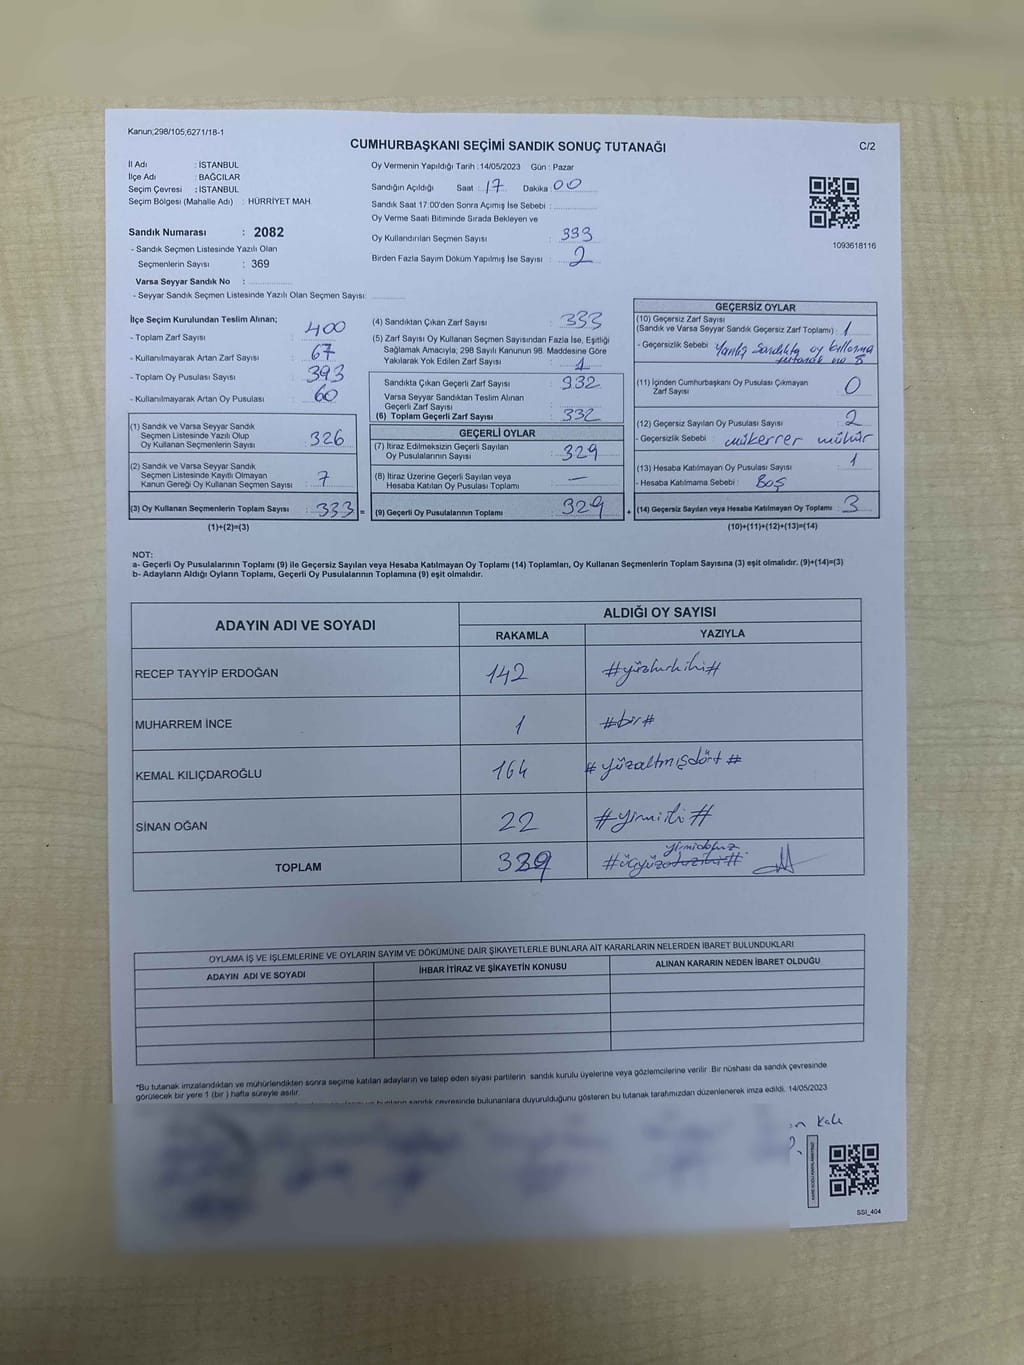 Kanun;298/105,6271/18-1
CUMHURBAŞKANI SEÇİMİ SANDIK SONUÇ TUTANAĞI
C/2
İl Adı : İSTANBUL
İlçe Adı : BAĞCILAR
Seçim Çevresi : İSTANBUL
Seçim Bölgesi (Mahalle Adı) : HÜRRİYET MAH.
Oy Vermenin Yapıldığı Tarih : 14/05/2023 Gün : Pazar
Sandığın Açıldığı Saat : 17 Dakika : 00
Sandık Saat 17:00'den Sonra Açımış İse Sebebi :
Oy Verme Saati Bitiminde Sırada Bekleyen ve
Oy Kullandırılan Seçmen Sayısı : 333
Birden Fazla Sayım Döküm Yapılmış İse Sayısı : 2
1093618116
Sandık Numarası : 2082
- Sandık Seçmen Listesinde Yazılı Olan
Seçmenlerin Sayısı : 369
Varsa Seyyar Sandık No :
- Seyyar Sandık Seçmen Listesinde Yazılı Olan Seçmen Sayısı:
İlçe Seçim Kurulundan Teslim Alınan;
- Toplam Zarf Sayısı : 400
- Kullanılmayarak Artan Zarf Sayısı : 67
- Toplam Oy Pusulası Sayısı : 393
- Kullanılmayarak Artan Oy Pusulası : 60
(1) Sandık ve Varsa Seyyar Sandık
Seçmen Listesinde Yazılı Olup
Oy Kullanan Seçmenlerin Sayısı : 326
(2) Sandık ve Varsa Seyyar Sandık
Seçmen Listesinde Kayıtlı Olmayan
Kanun Gereği Oy Kullanan Seçmen Sayısı : 7
(3) Oy Kullanan Seçmenlerin Toplam Sayısı : 333 =
(1)+(2)=(3)
(4) Sandıktan Çıkan Zarf Sayısı : 333
(5) Zarf Sayısı Oy Kullanan Seçmen Sayısından Fazla İse, Eşitliği
Sağlamak Amacıyla; 298 Sayılı Kanunun 98. Maddesine Göre
Yakılarak Yok Edilen Zarf Sayısı : 1
Sandıkta Çıkan Geçerli Zarf Sayısı : 332
Varsa Seyyar Sandıktan Teslim Alınan
Geçerli Zarf Sayısı :
(6) Toplam Geçerli Zarf Sayısı : 332
GEÇERLİ OYLAR
(7) İtiraz Edilmeksizin Geçerli Sayılan
Oy Pusulalarının Sayısı : 329
(8) İtiraz Üzerine Geçerli Sayılan veya
Hesaba Katılan Oy Pusulası Toplamı : —
(9) Geçerli Oy Pusulalarının Toplamı : 329 +
GEÇERSİZ OYLAR
(10) Geçersiz Zarf Sayısı
(Sandık ve Varsa Seyyar Sandık Geçersiz Zarf Toplamı) : 1
- Geçersizlik Sebebi : Yanlış sandıkta oy kullanma
tutanak no 8
(11) İçinden Cumhurbaşkanı Oy Pusulası Çıkmayan
Zarf Sayısı : 0
(12) Geçersiz Sayılan Oy Pusulası Sayısı : 2
- Geçersizlik Sebebi : mükerrer mühür
(13) Hesaba Katılmayan Oy Pusulası Sayısı : 1
- Hesaba Katılmama Sebebi : Boş
(14) Geçersiz Sayılan veya Hesaba Katılmayan Oy Toplamı : 3
(10)+(11)+(12)+(13)=(14)
NOT:
a- Geçerli Oy Pusulalarının Toplamı (9) ile Geçersiz Sayılan veya Hesaba Katılmayan Oy Toplamı (14) Toplamları, Oy Kullanan Seçmenlerin Toplam Sayısına (3) eşit olmalıdır. (9)+(14)=(3)
b- Adayların Aldığı Oyların Toplamı, Geçerli Oy Pusulalarının Toplamına (9) eşit olmalıdır.
ADAYIN ADI VE SOYADI
ALDIĞI OY SAYISI
RAKAMLA YAZIYLA
RECEP TAYYİP ERDOĞAN 142 #yüzkırkiki#
MUHARREM İNCE 1 #bir#
KEMAL KILIÇDAROĞLU 164 #yüzaltmışdört#
SİNAN OĞAN 22 #yirmiiki#
yirmidokuz
TOPLAM 329 #üçyüz #
OYLAMA İŞ VE İŞLEMLERİNE VE OYLARIN SAYIM VE DÖKÜMÜNE DAİR ŞİKAYETLERLE BUNLARA AİT KARARLARIN NELERDEN İBARET BULUNDUKLARI
ADAYIN ADI VE SOYADI İHBAR İTİRAZ VE ŞİKAYETİN KONUSU ALINAN KARARIN NEDEN İBARET OLDUĞU
*Bu tutanak imzalandıktan ve mühürlendikten sonra seçime katılan adayların ve talep eden siyasi partilerin sandık kurulu üyelerine veya gözlemcilerine verilir. Bir nüshası da sandık çevresinde
görülecek bir yere 1 (bir) hafta süreyle asılır.
sandık çevresinde bulunanlara duyurulduğunu gösteren bu tutanak tarafımızdan düzenlenerek imza edildi. 14/05/2023
SSİ_404